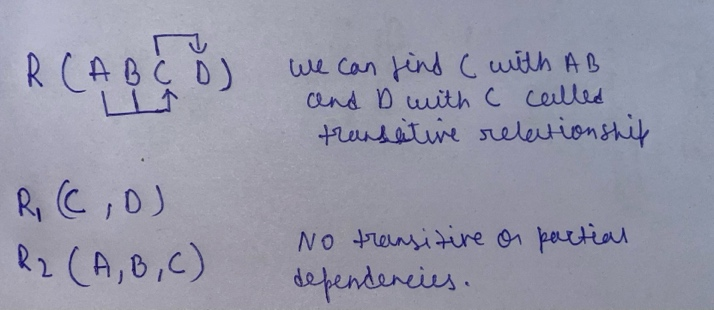 R ( A B C D )
we can find C with AB
and D with C called
transitive relationship
R1 ( C , D )
R2 ( A , B , C )
No transitive or partial
dependencies.